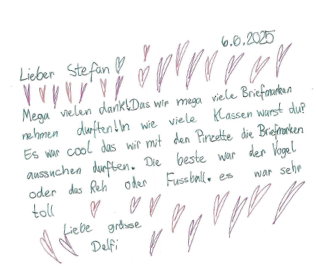 6.6.2025
Lieber Stefan
Mega vielen dank!Das wir mega viele Briefmarken
nehmen durften!In wie viele Klassen warst du?
Es war cool das wir mit den Pincette die Briefmarken
aussuchen durften. Die beste war der Vogel
oder das Reh oder Fussball. es war sehr
toll
Liebe grüsse
Delfi